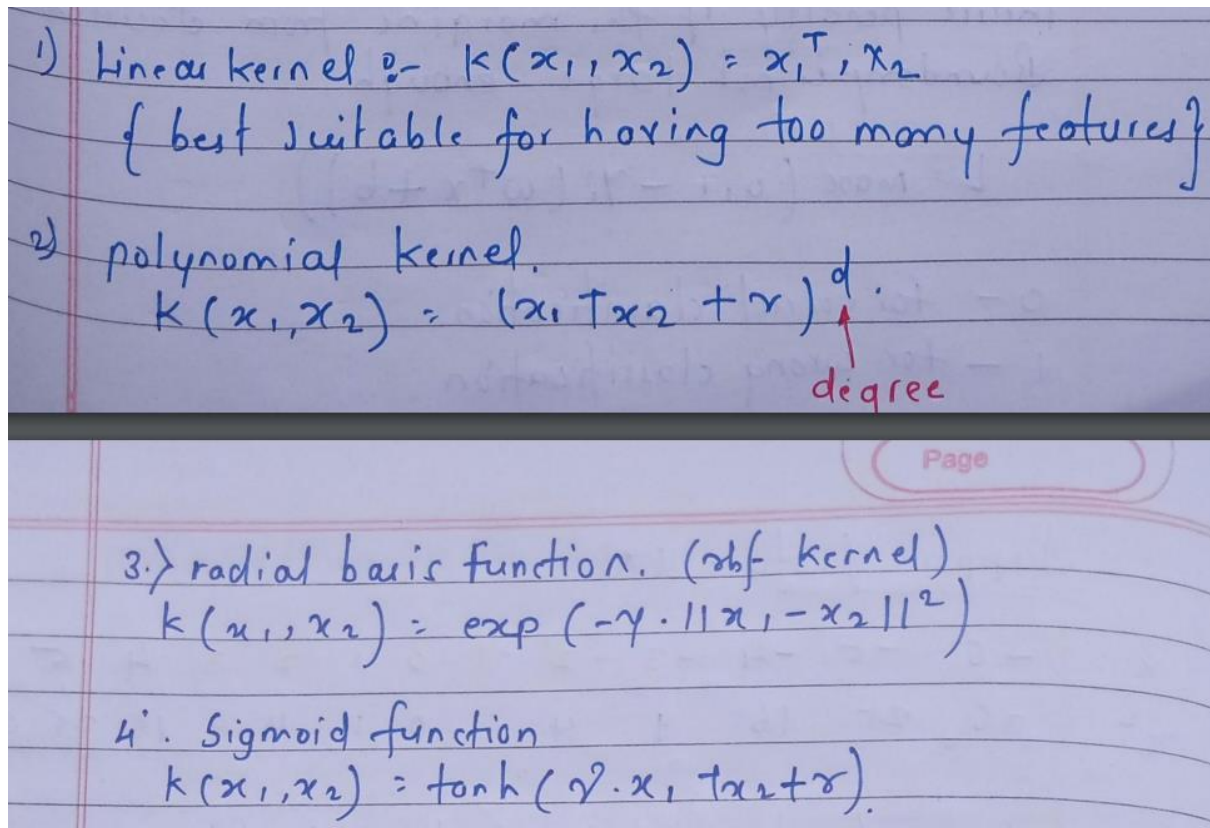 1) Linear kernel :- K(x₁, x₂) = x₁ᵀ, x₂
{ best suitable for having too many features}
2) polynomial kernel.
K(x₁, x₂) = (x₁ T x₂ + r)ᵈ.
degree
Page
3.) radial basis function. (rbf kernel)
K(x₁, x₂) = exp(-γ. ||x₁ - x₂||²)
4. Sigmoid function
K(x₁, x₂) = tanh(γ. x₁ T x₂ + r).